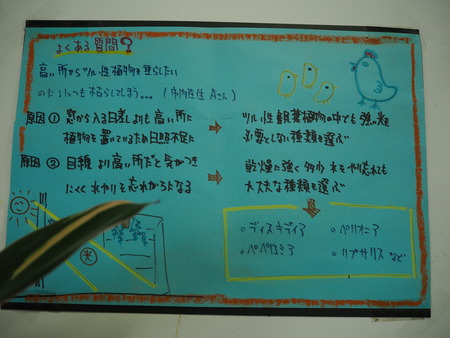 よくある質問?
高い所からツル性植物を垂らしたい
のにいつも枯らしてしまう... (市内在住 Aさん)
原因① 窓から入る日差しよりも高い所に
植物を置いているため日照不足に
⇒
ツル性観葉植物の中でも強い光を
必要としない種類を選ぶ
原因② 目線より高い所だと気がつき
にくく水やりを忘れがちになる
⇒
乾燥に強く多少水を切れても
大丈夫な種類を選ぶ
○ディスキディア
○ペペロミア
○ペリオニア
○リプサリス など
光